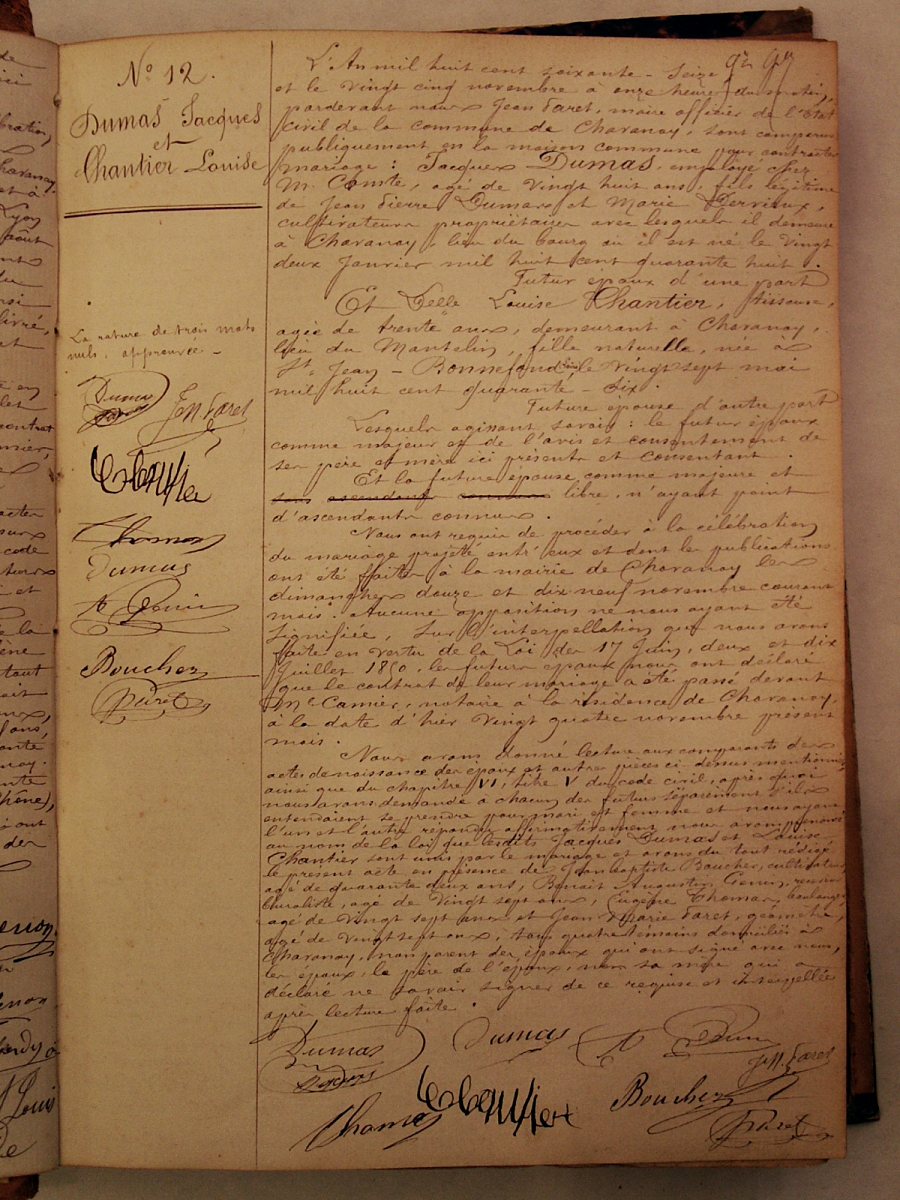 Nº 12.
Dumas Jacques
et
Chantier Louise
La rature de trois mots
nuls, approuvée -
Dumas
Jn M Paret
Chantier
Thomas
Dumas
Boucher
Paret
L'An mil huit cent soixante - seize
et le vingt cinq novembre à onze heures du matin,
pardevant nous Jean Paret, maire officier de l'Etat
civil de la commune de Chavanay, sont comparus
publiquement en la maison commune pour contracter
mariage : Jacques Dumas, employé chez
M. Comte, agé de vingt huit ans, fils légitime
de Jean Pierre Dumas et Marie Dervieux,
cultivateurs propriétaires avec lesquels il demeure
à Chavanay, lieu du bourg où il est né le vingt
deux janvier mil huit cent quarante huit.
Futur époux d'une part
Et Delle Louise Chantier, tisseuse,
agée de trente ans, demeurant à Chavanay,
lieu du Mantelin, fille naturelle, née à
St Jean - Bonnefond, le vingt sept mai
mil huit cent quarante - six.
Future épouse d'autre part
Lesquels agissant savoir : le futur époux
comme majeur et de l'avis et consentement de
ses père et mère ici présents et consentant.
Et la future épouse comme majeure et
sans ascendants connus libre, n'ayant point
d'ascendants connus.
Nous ont requis de procéder à la célébration
du mariage projeté entr'eux et dont les publications
ont été faites à la mairie de Chavanay les
dimanches douze et dix neuf novembre courant
mois. Aucune opposition ne nous ayant été
signifiée, sur l'interpellation que nous avons
faite en vertu de la Loi des 17 Juin, deux et dix
Juillet 1850, les futurs époux nous ont déclaré
que le contrat de leur mariage a été passé devant
Me Camier, notaire à la résidence de Chavanay,
à la date d'hier vingt quatre novembre présent
mois.
Nous avons donné lecture aux comparants des
actes de naissance des époux et autres pièces ci dessus mentionnées
ainsi que du chapitre VI, titre V du code civil, après quoi
nous avons demandé à chacun des futurs séparément s'ils
entendaient se prendre pour mari et femme et nous ayant
l'un et l'autre répondu affirmativement nous avons prononcé
au nom de la loi que lesdits Jacques Dumas et Louise
Chantier sont unis par le mariage et avons du tout rédigé
le présent acte en présence de Jean baptiste Boucher, cultivateur
agé de quarante deux ans, Benoit Augustin Genin, receveur
buraliste, agé de vingt sept ans, Eugène Thomas, boulanger
agé de vingt sept ans et Jean Marie Paret, géomètre,
agé de vingt sept ans, tous quatre témoins domiciliés à
Chavanay, non parent des époux qui ont signé avec nous,
les époux, le père de l'époux, non sa mère qui a
déclaré ne savoir signer de ce requise et interpellée
après lecture faite.
Dumas
Dumas
Jn M. Paret
Chantier
Boucher
Thomas
Paret